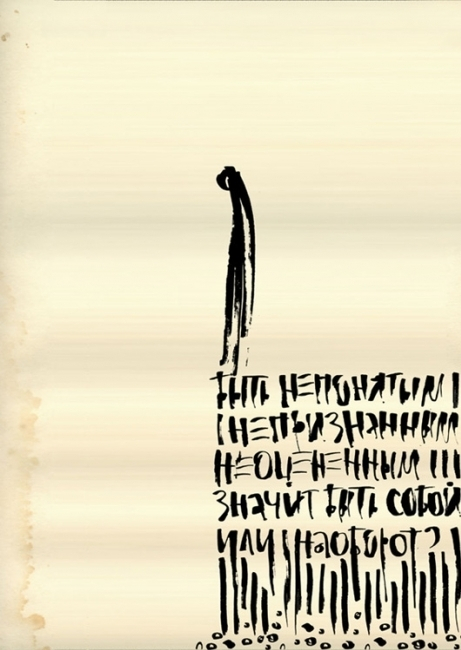 БЫТЬ НЕПОНЯТЫМ
НЕПРИЗНАННЫМ
НЕОЦЕНЕННЫМ
ЗНАЧИТ БЫТЬ СОБОЙ
ИЛИ НАОБОРОТ?